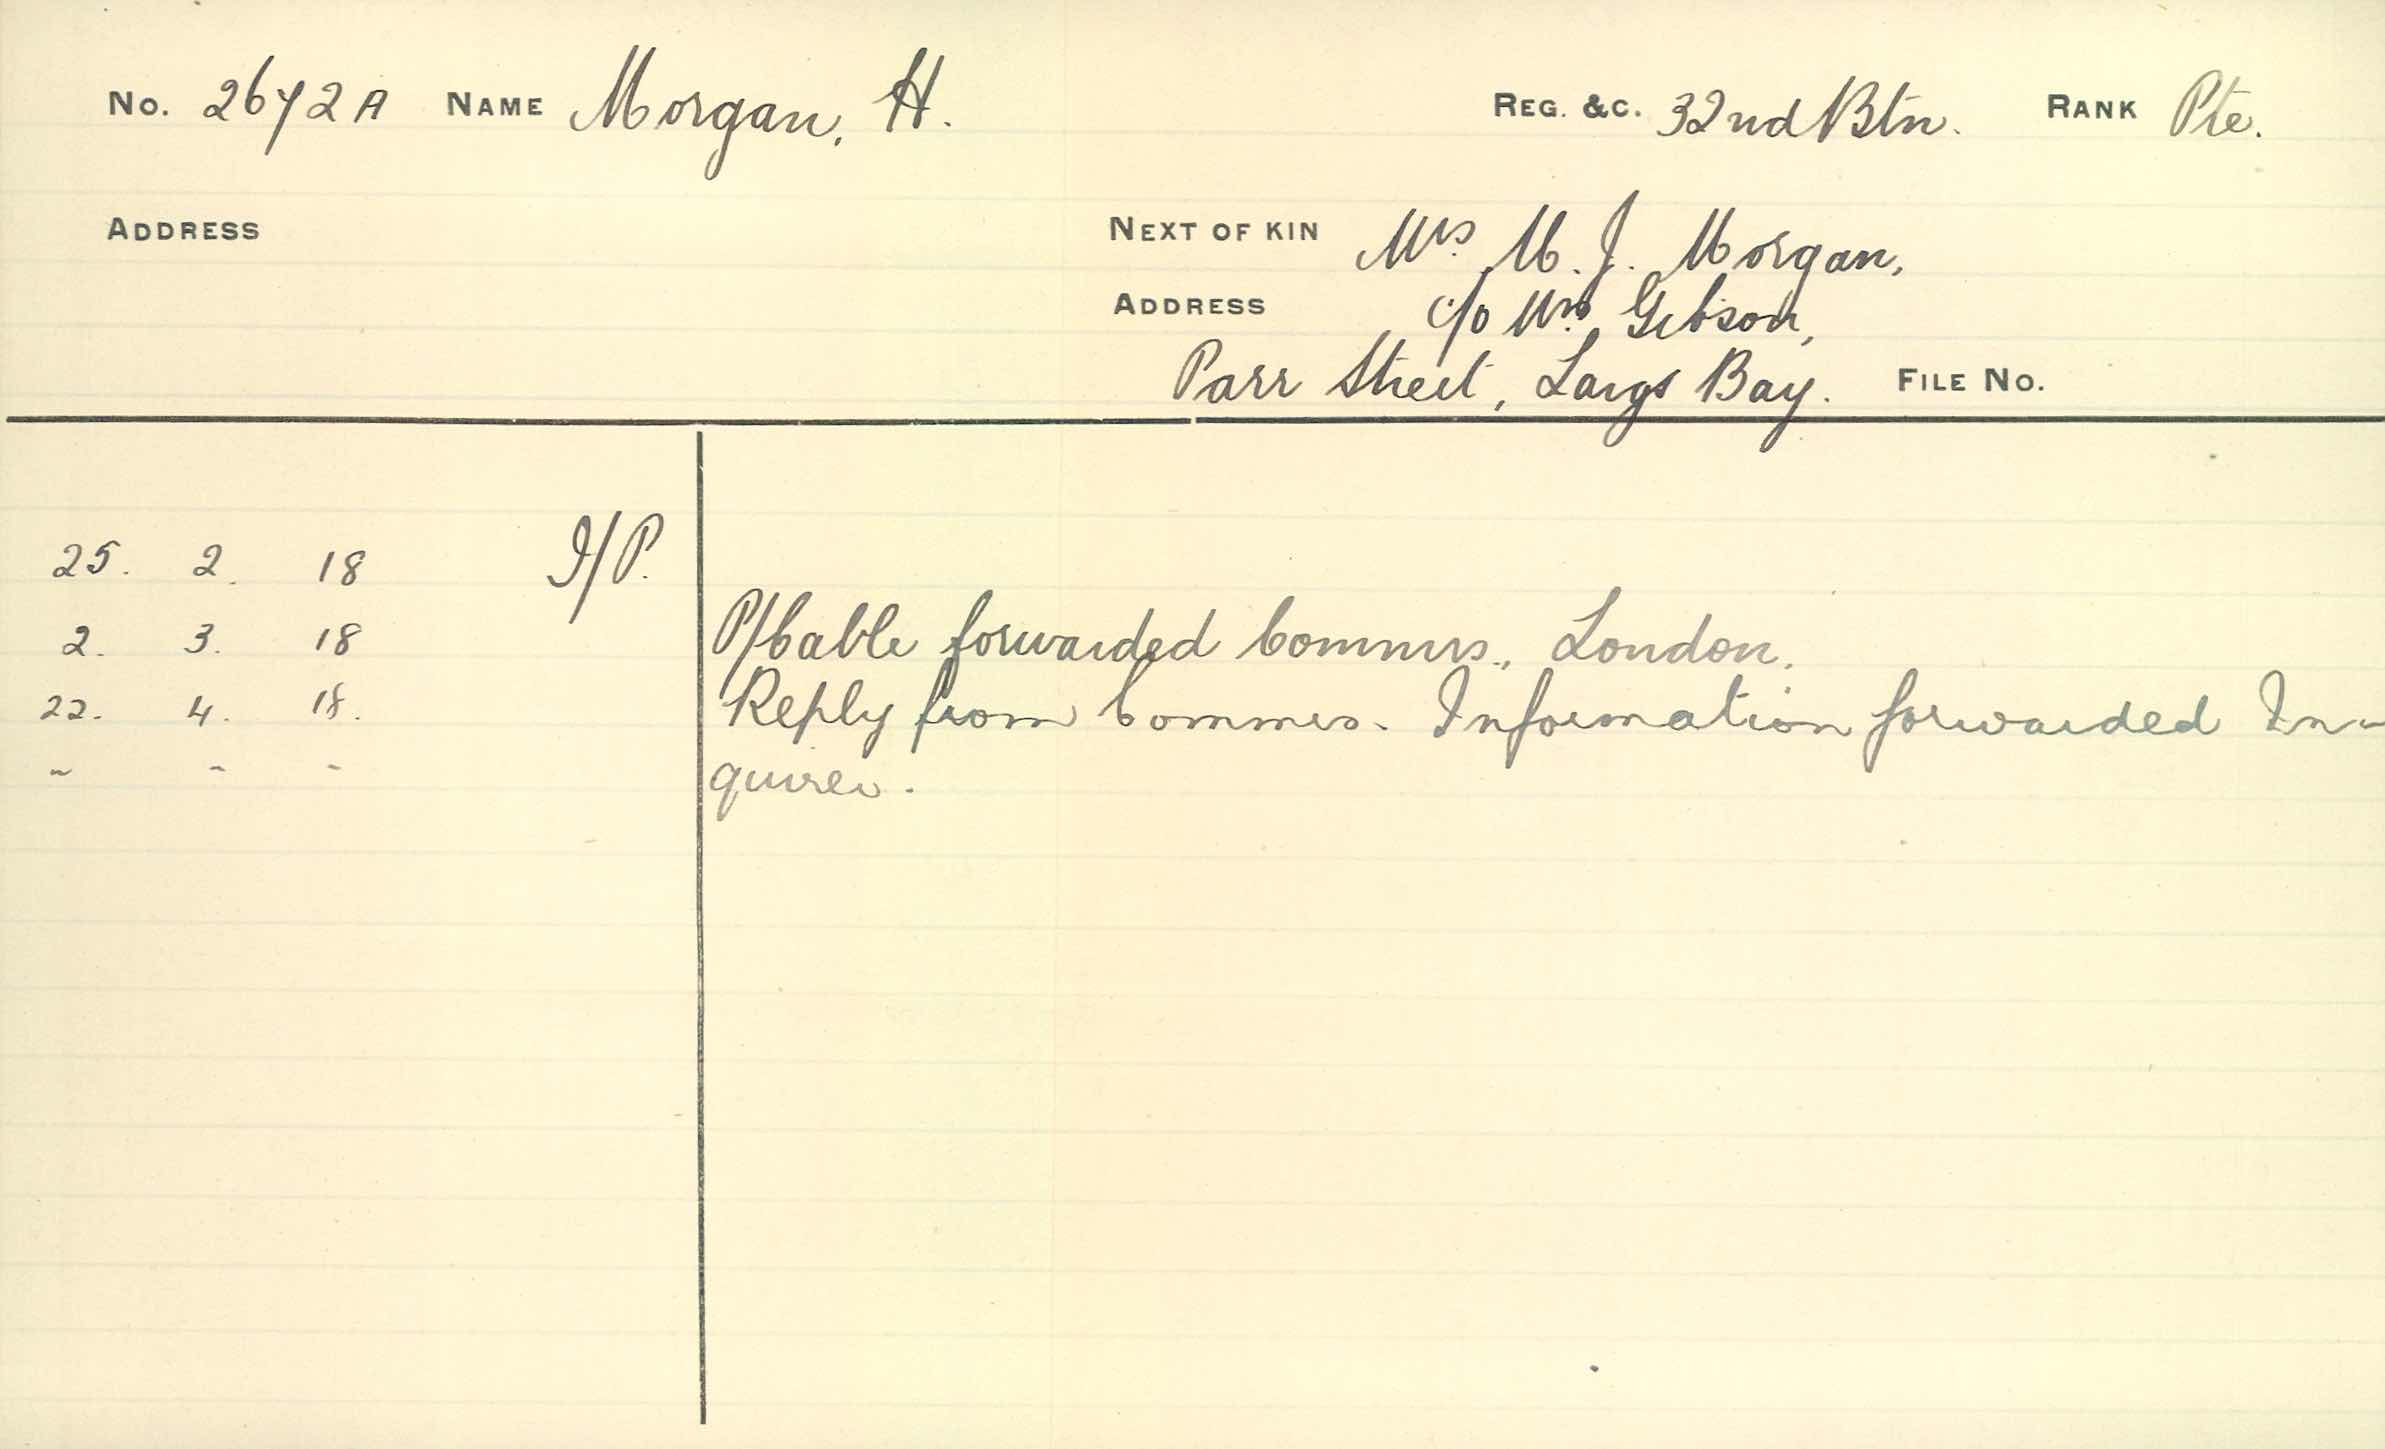 No. 2672A NAME Morgan, H. REG. &C. 32nd Btn. RANK Pte.
ADDRESS NEXT OF KIN Mrs. M. J. Morgan,
ADDRESS c/o Mrs. Gibson,
Parr Street, Largs Bay. FILE No.
25. 2. 18 I/P.
2. 3. 18 P/cable forwarded Commrs., London.
22. 4. 18. Reply from Commrs. Information forwarded In-
" " " quirer.